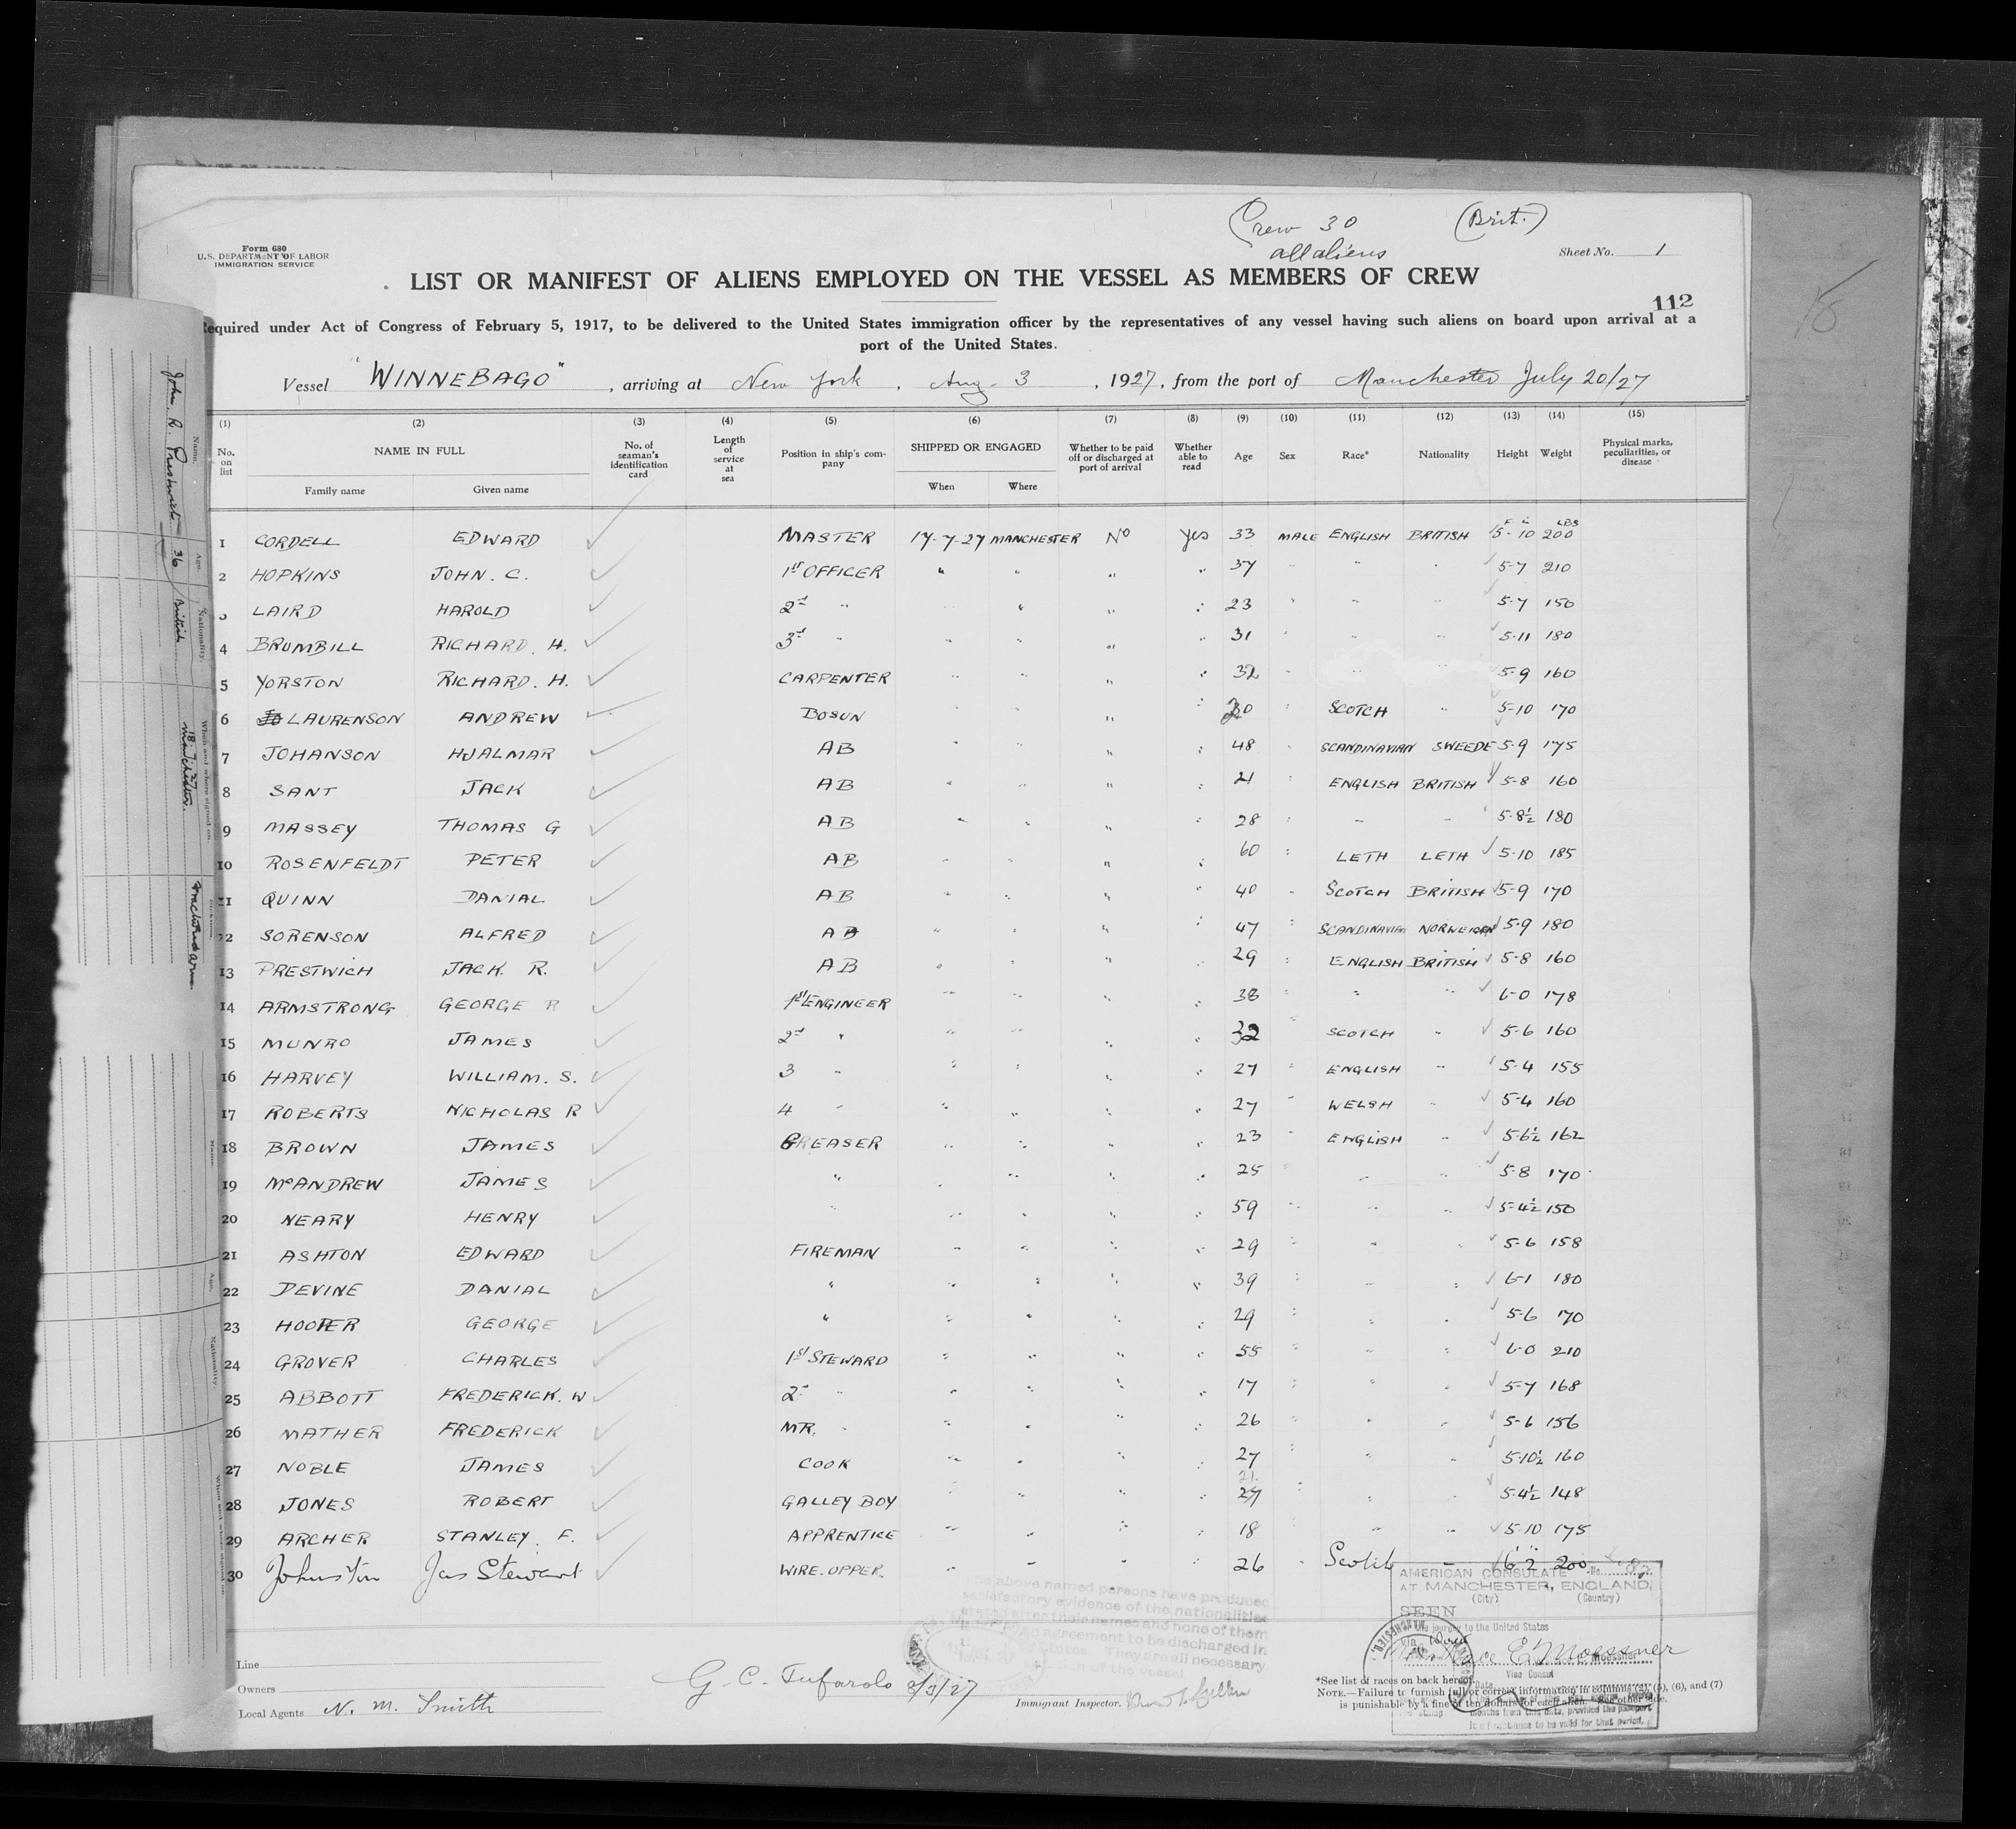 Crew 30 (Brit.)
all aliens
Form 680
U.S. DEPARTMENT OF LABOR
IMMIGRATION SERVICE
Sheet No. 1
LIST OR MANIFEST OF ALIENS EMPLOYED ON THE VESSEL AS MEMBERS OF CREW
112
18
Required under Act of Congress of February 5, 1917, to be delivered to the United States immigration officer by the representatives of any vessel having such aliens on board upon arrival at a
port of the United States.
Vessel "WINNEBAGO", arriving at New York, Aug 3, 1927, from the port of Manchester July 20/27
(1) (2) (3) (4) (5) (6) (7) (8) (9) (10) (11) (12) (13) (14) (15)
No. on list NAME IN FULL No. of seaman's identification card Length of service at sea Position in ship's company SHIPPED OR ENGAGED Whether to be paid off or discharged at port of arrival Whether able to read Age Sex Race* Nationality Height Weight Physical marks, peculiarities, or disease
Family name Given name When Where
F I LBS
1 CORDELL EDWARD MASTER 17-7-27 MANCHESTER NO Yes 33 MALE ENGLISH BRITISH 5-10 200
2 HOPKINS JOHN. C. 1st OFFICER " " " " 37 " " " 5-7 210
3 LAIRD HAROLD 2nd " " " " " 23 " " " 5-7 150
4 BRUMBILL RICHARD. H. 3rd " " " " " 31 " " " 5-11 180
5 YORSTON RICHARD. H. CARPENTER " " " " 32 " " " 5-9 160
6 LAURENSON ANDREW BOSUN " " " " 30 " SCOTCH " 5-10 170
7 JOHANSON HJALMAR AB " " " " 48 " SCANDINAVIAN SWEEDE 5-9 175
8 SANT JACK AB " " " " 21 " ENGLISH BRITISH 5-8 160
9 MASSEY THOMAS G AB " " " " 28 " " " 5-8½ 180
10 ROSENFELDT PETER AB " " " " 60 " LETH LETH 5-10 185
11 QUINN DANIAL AB " " " " 40 " SCOTCH BRITISH 5-9 170
12 SORENSON ALFRED AB " " " " 47 " SCANDINAVIAN NORWEIGEN 5-9 180
13 PRESTWICH JACK R. AB " " " " 29 ENGLISH BRITISH 5-8 160
14 ARMSTRONG GEORGE R 1st ENGINEER " " " " 38 " " " 6-0 178
15 MUNRO JAMES 2nd " " " " " 32 " SCOTCH " 5-6 160
16 HARVEY WILLIAM. S. 3 " " " " " 27 " ENGLISH " 5-4 155
17 ROBERTS NICHOLAS R 4 " " " " " 27 " WELSH " 5-4 160
18 BROWN JAMES GREASER " " " " 23 " ENGLISH " 5-6½ 162
19 McANDREW JAMES " " " " " 25 " " " 5-8 170
20 NEARY HENRY " " " " " 59 " " " 5-4½ 150
21 ASHTON EDWARD FIREMAN " " " " 29 " " " 5-6 158
22 DEVINE DANIAL " " " " " 39 " " " 6-1 180
23 HOOPER GEORGE " " " " " 29 " " " 5-6 170
24 GROVER CHARLES 1st STEWARD " " " " 55 " " " 6-0 210
25 ABBOTT FREDERICK. W 2nd " " " " " 17 " " " 5-7 168
26 MATHER FREDERICK MR. " " " " " 26 " " " 5-6 156
27 NOBLE JAMES COOK " " " " 27 " " " 5-10½ 160
28 JONES ROBERT GALLEY BOY " " " " 27 21 " " " 5-4½ 148
29 ARCHER STANLEY. F. APPRENTICE " " " " 18 " " 5-10 175
30 Johnston Jas Stewart WIRE. OPPER. " " " " 26 " Scotch " 6'2" 200
The above named persons have produced
satisfactory evidence of the nationalities
stated after their names and none of them
agreement to be discharged in
States. They are all necessary
of the vessel.
AMERICAN CONSULATE No.
AT MANCHESTER, ENGLAND,
(City) (Country)
SEEN
journey to the United States
E. Moessner
Vice Consul
months from this date, provided the passport
continues to be valid for that period.
Line
Owners
Local Agents N. M. Smith
G. C. Tufarolo 8/3/27
Immigrant Inspector.
*See list of races on back hereof.
NOTE.—Failure to furnish full or correct information in columns (6), and (7)
is punishable by a fine of ten dollars for each alien. See other side.
Name. Age. Nationality. When and where signed on.
John. R. Prestwich 36 British 18.7.27 Manchester.